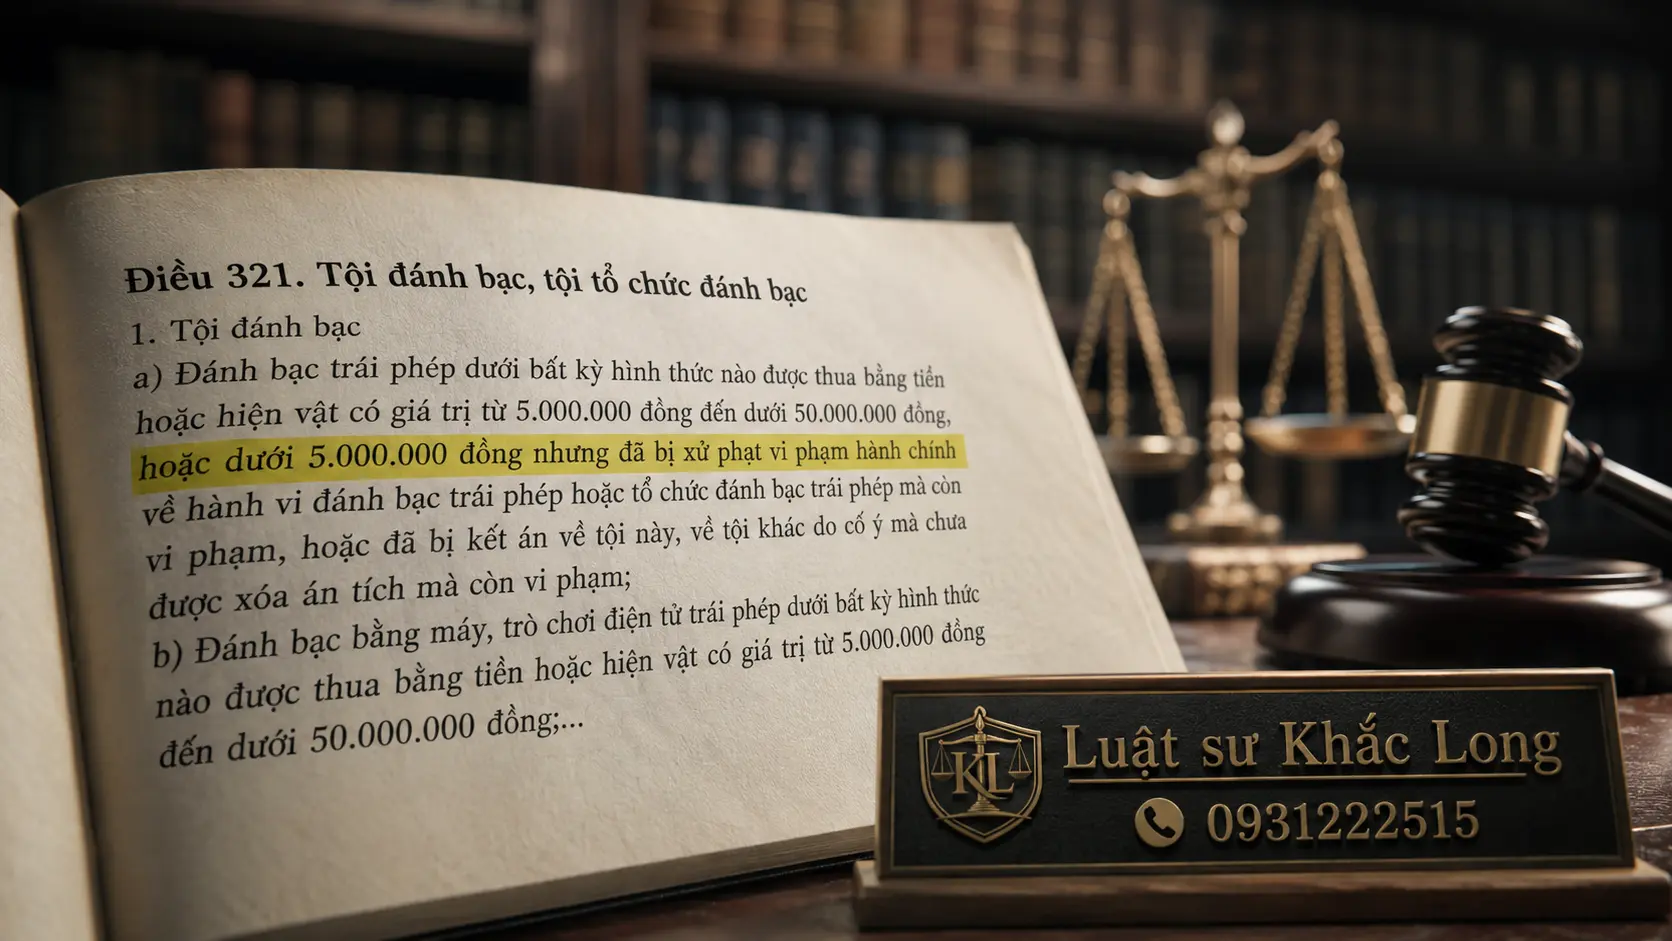 Điều 321. Tội đánh bạc, tội tổ chức đánh bạc
1. Tội đánh bạc
a) Đánh bạc trái phép dưới bất kỳ hình thức nào được thua bằng tiền
hoặc hiện vật có giá trị từ 5.000.000 đồng đến dưới 50.000.000 đồng,
hoặc dưới 5.000.000 đồng nhưng đã bị xử phạt vi phạm hành chính
về hành vi đánh bạc trái phép hoặc tổ chức đánh bạc trái phép mà còn
vi phạm, hoặc đã bị kết án về tội này, về tội khác do cố ý mà chưa
được xóa án tích mà còn vi phạm;
b) Đánh bạc bằng máy, trò chơi điện tử trái phép dưới bất kỳ hình thức
nào được thua bằng tiền hoặc hiện vật có giá trị từ 5.000.000 đồng
đến dưới 50.000.000 đồng;...
KL
Luật sư Khắc Long
0931222515